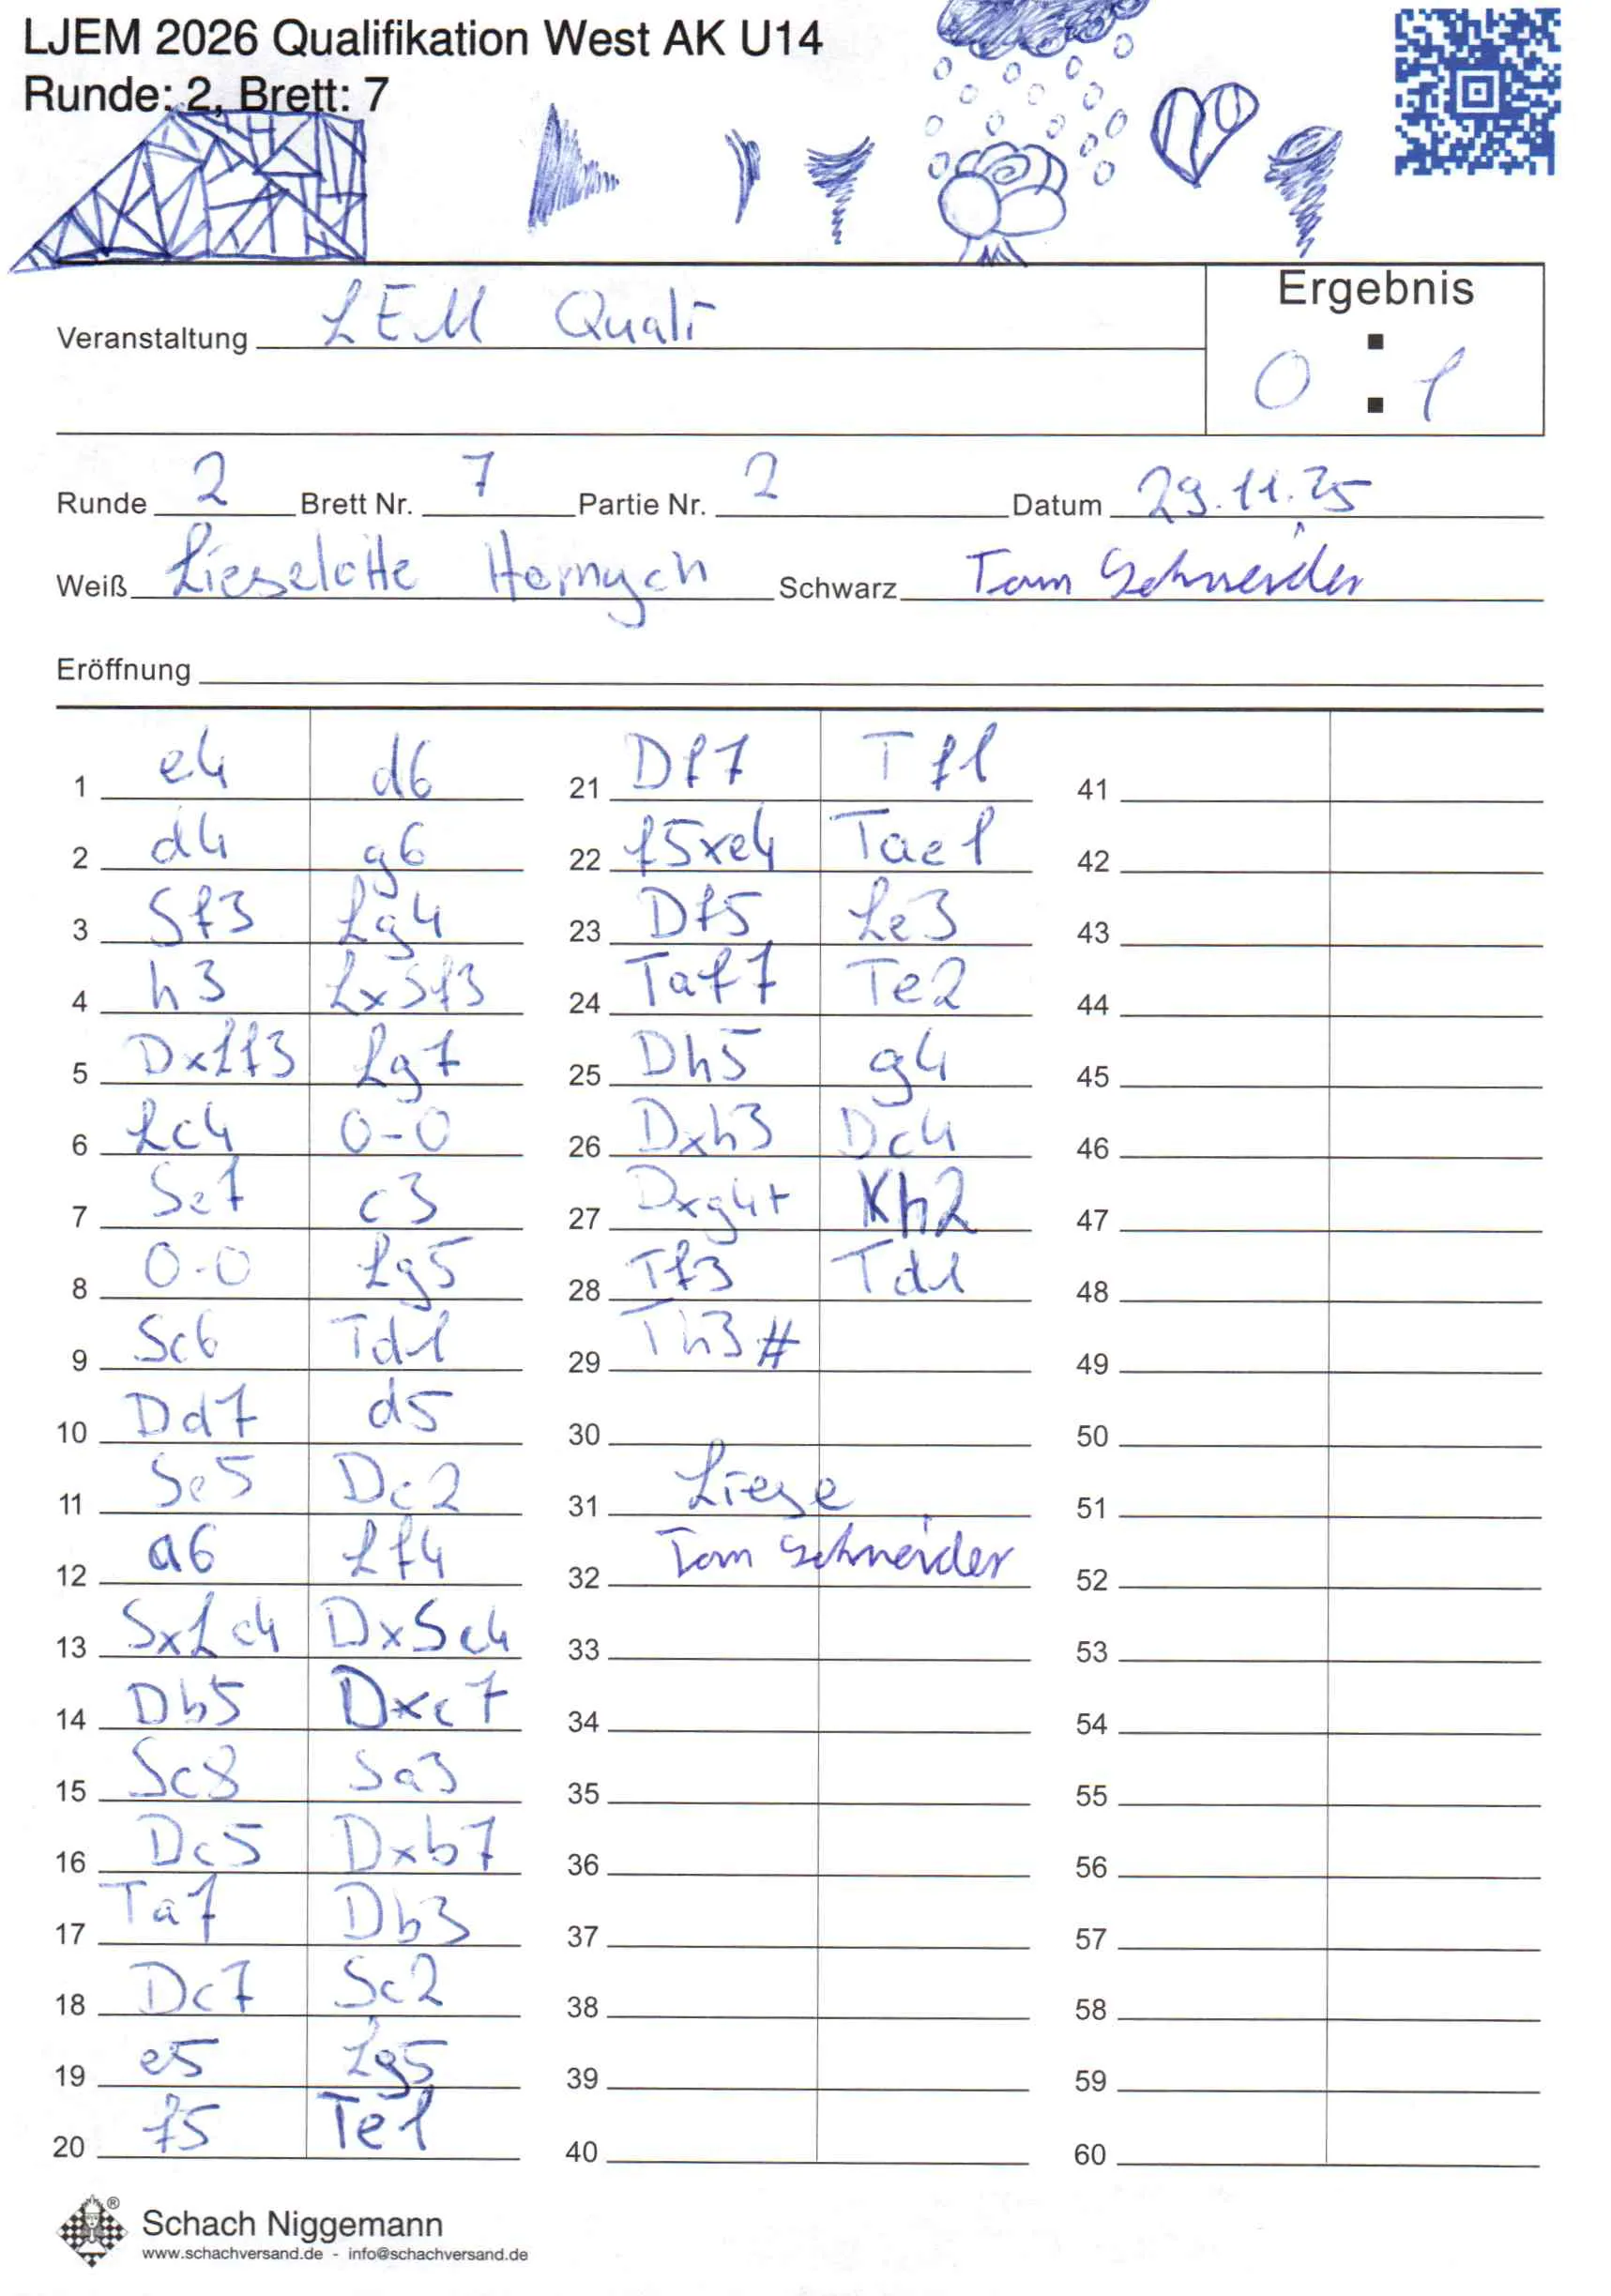 LJEM 2026 Qualifikation West AK U14
Runde: 2, Brett: 7
Ergebnis
Veranstaltung LEM Quali
0 : 1
Runde 2 Brett Nr. 7 Partie Nr. 2 Datum 29.11.25
Weiß Lieselotte Hornych Schwarz Tom Schneider
Eröffnung
1 e4 d6 21 Df7 Tf1 41
2 d4 g6 22 f5xe4 Tae1 42
3 Sf3 Lg4 23 Df5 Le3 43
4 h3 LxSf3 24 Taf7 Te2 44
5 DxLf3 Lg7 25 Dh5 g4 45
6 Lc4 0-0 26 Dxh3 Dc4 46
7 Se7 c3 27 Dxg4+ Kh2 47
8 0-0 Lg5 28 Tf3 Td1 48
9 Sc6 Td1 29 Th3# 49
10 Dd7 d5 30 50
11 Se5 Dc2 31 Liese 51
12 a6 Lf4 32 Tom Schneider 52
13 SxLc4 DxSc4 33 53
14 Db5 Dxc7 34 54
15 Sc8 Sa3 35 55
16 Dc5 Dxb7 36 56
17 Ta7 Db3 37 57
18 Dc7 Sc2 38 58
19 e5 Lg5 39 59
20 f5 Te1 40 60
Schach Niggemann ®
www.schachversand.de - info@schachversand.de